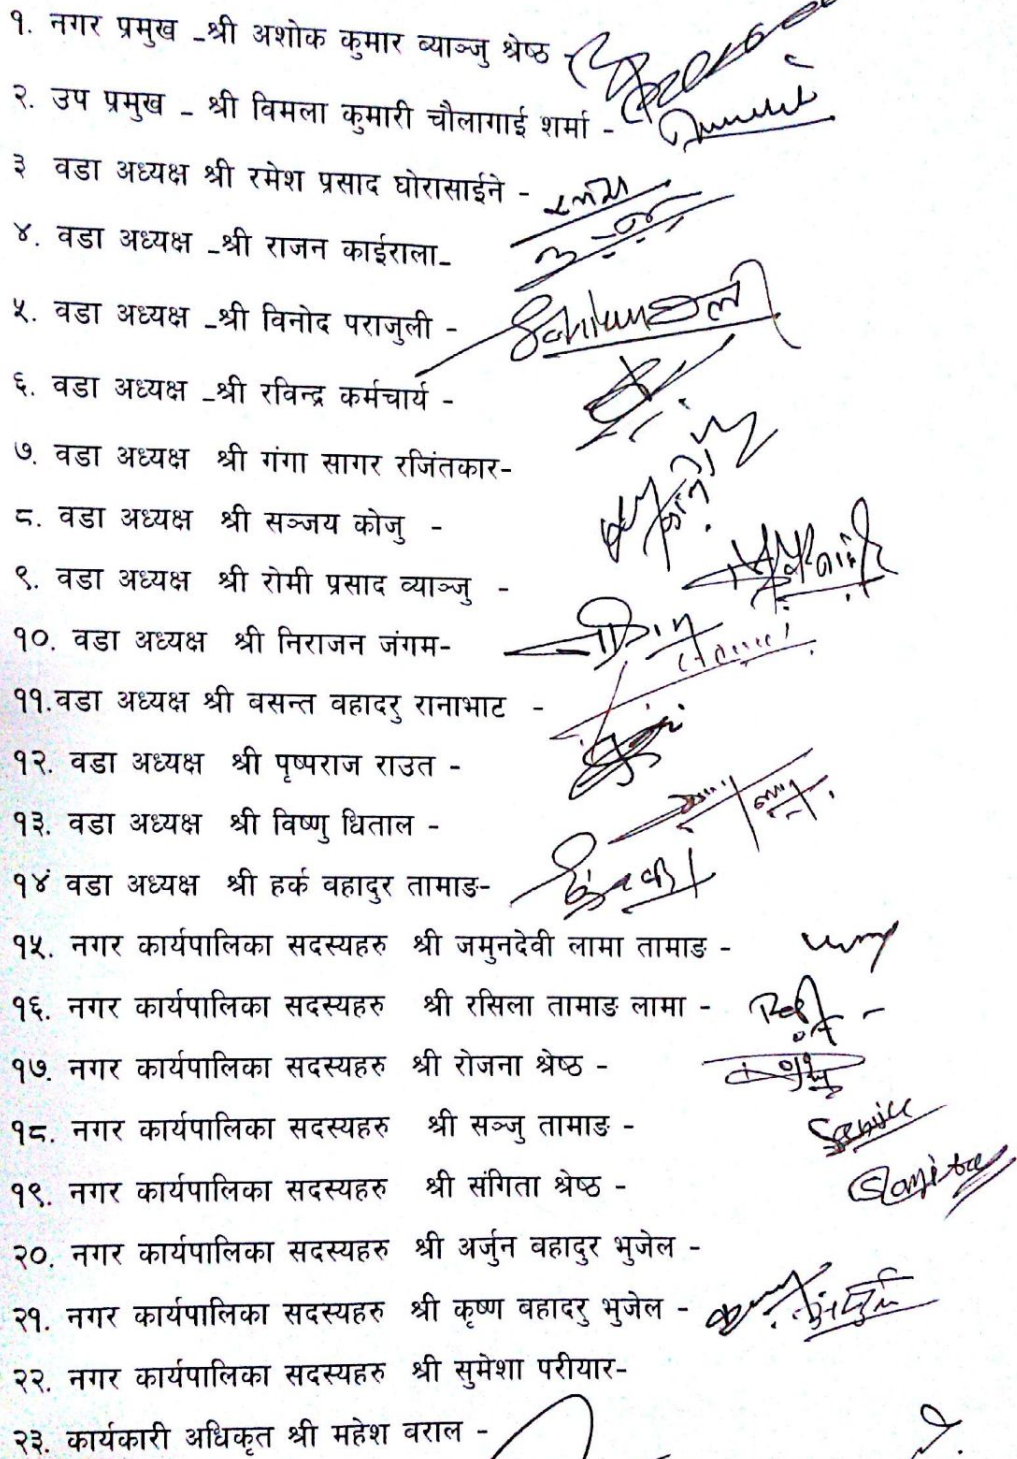 १. नगर प्रमुख -श्री अशोक कुमार व्याञ्जु श्रेष्ठ -
२. उप प्रमुख - श्री विमला कुमारी चौलागाई शर्मा -
३ वडा अध्यक्ष श्री रमेश प्रसाद घोरासाईने -
४. वडा अध्यक्ष -श्री राजन काईराला-
५. वडा अध्यक्ष -श्री विनोद पराजुली -
६. वडा अध्यक्ष -श्री रविन्द्र कर्मचार्य -
७. वडा अध्यक्ष श्री गंगा सागर रजिंतकार-
८. वडा अध्यक्ष श्री सञ्जय कोजु -
९. वडा अध्यक्ष श्री रोमी प्रसाद व्याञ्जु -
१०. वडा अध्यक्ष श्री निराजन जंगम-
११.वडा अध्यक्ष श्री वसन्त वहादरु रानाभाट -
१२. वडा अध्यक्ष श्री पृष्पराज राउत -
१३. वडा अध्यक्ष श्री विष्णु धिताल -
१४ं वडा अध्यक्ष श्री हर्क वहादुर तामाङ-
१५. नगर कार्यपालिका सदस्यहरु श्री जमुनदेवी लामा तामाङ -
१६. नगर कार्यपालिका सदस्यहरु श्री रसिला तामाङ लामा -
१७. नगर कार्यपालिका सदस्यहरु श्री रोजना श्रेष्ठ -
१८. नगर कार्यपालिका सदस्यहरु श्री सञ्जु तामाङ -
१९. नगर कार्यपालिका सदस्यहरु श्री संगिता श्रेष्ठ -
२०. नगर कार्यपालिका सदस्यहरु श्री अर्जुन बहादुर भुजेल -
२१. नगर कार्यपालिका सदस्यहरु श्री कृष्ण बहादरु भुजेल -
२२. नगर कार्यपालिका सदस्यहरु श्री सुमेशा परीयार-
२३. कार्यकारी अधिकृत श्री महेश वराल -